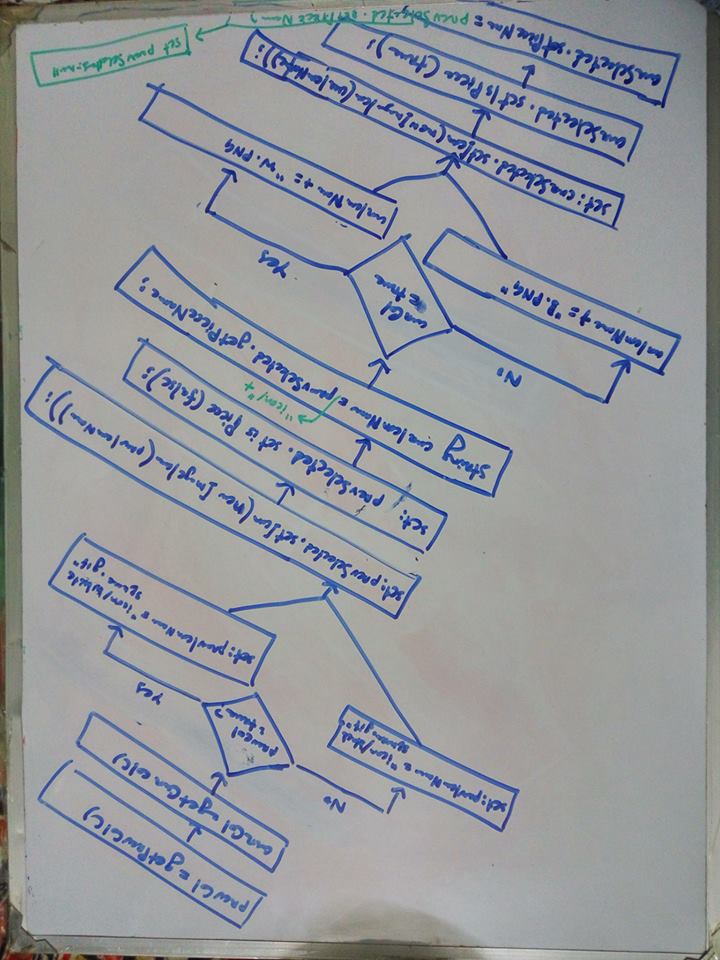 prevCol = getPrevCol()
currCol = getCurrCol()
No
set: prevIconName = "icon/black
square.gif"
prevCol
= true?
Yes
set: prevIconName = "icon/white
square.gif"
set: prevSelected.setIcon(new ImageIcon(prevIconName));
set: prevSelected.set is Piece(false);
"icon/" +
String currIconName = prevSelected.getPieceName;
No
currCol
= true
currIconName += "B.PNG"
Yes
currIconName += "W.PNG
set: currSelected.setIcon(new ImageIcon(currIconName));
currSelected.setIsPiece(true);
currSelected.setPieceName = prevSelected.getPieceName;
set prevSelected = null